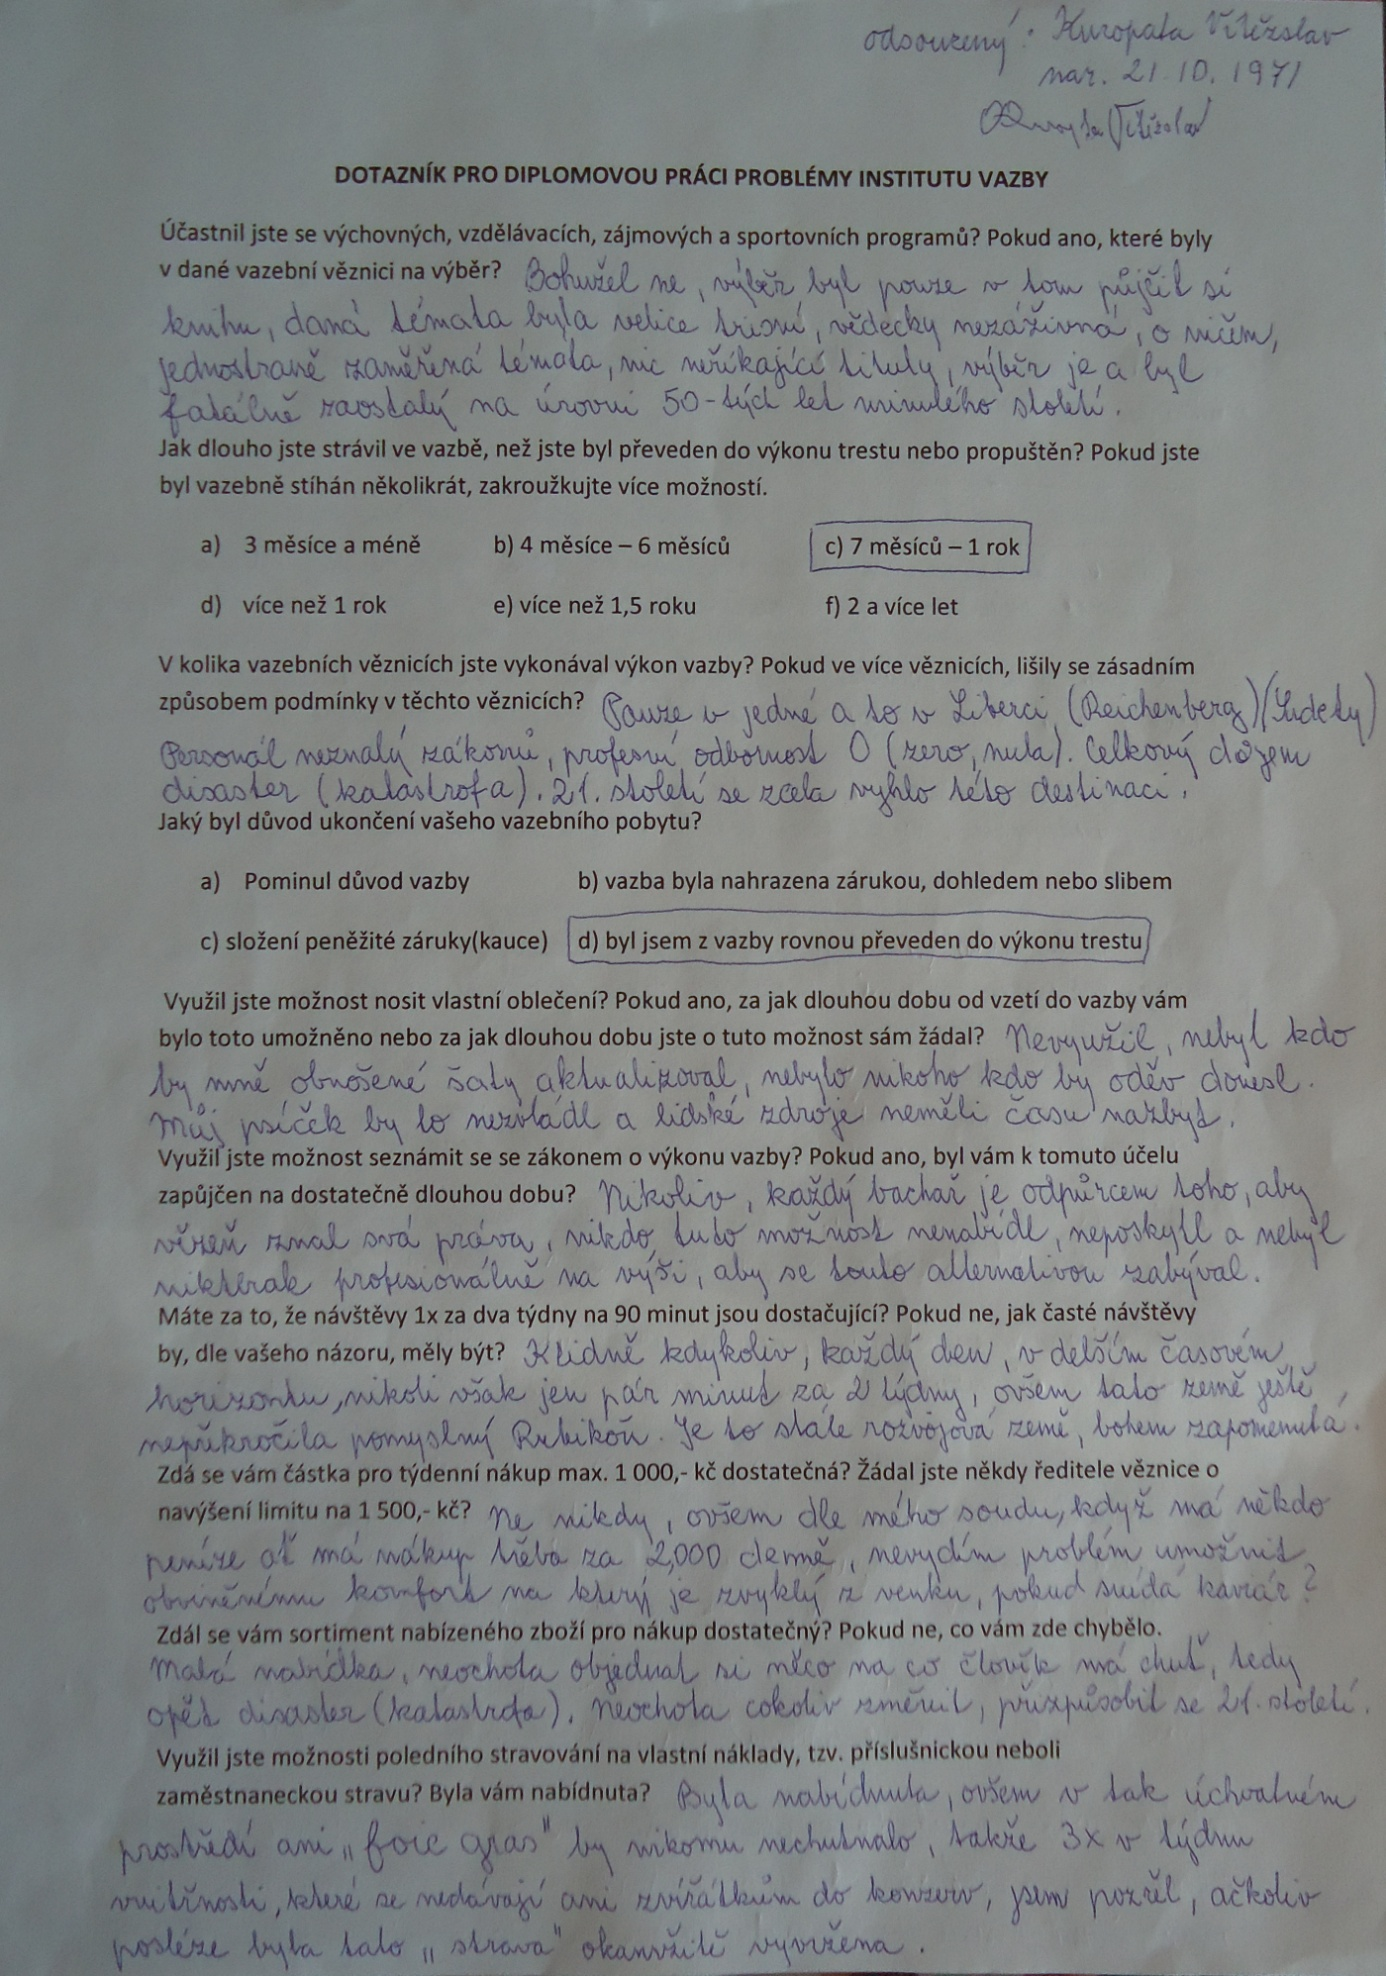 odsouzený: Kuropata Vítězslav
nar. 21.10. 1971
DOTAZNÍK PRO DIPLOMOVOU PRÁCI PROBLÉMY INSTITUTU VAZBY
Účastnil jste se výchovných, vzdělávacích, zájmových a sportovních programů? Pokud ano, které byly
v dané vazební věznici na výběr? Bohužel ne, výběr byl pouze v tom půjčit si
knihu, daná témata byla velice tristní, vědecky nezáživná, o ničem,
jednostraně zaměřená témata, nic neříkající tituly, výběr je a byl
fatálně zaostalý na úrovni 50-tých let minulého století.
Jak dlouho jste strávil ve vazbě, než jste byl převeden do výkonu trestu nebo propuštěn? Pokud jste
byl vazebně stíhán několikrát, zakroužkujte více možností.
a) 3 měsíce a méně b) 4 měsíce – 6 měsíců c) 7 měsíců – 1 rok
d) více než 1 rok e) více než 1,5 roku f) 2 a více let
V kolika vazebních věznicích jste vykonával výkon vazby? Pokud ve více věznicích, lišily se zásadním
způsobem podmínky v těchto věznicích? Pouze v jedné a to v Liberci (Reichenberg) (Sudety)
Personál neznalý zákonů, profesní odbornost 0 (zero, nula). Celkový dojem
disaster (katastrofa). 21. století se zcela vyhlo této destinaci.
Jaký byl důvod ukončení vašeho vazebního pobytu?
a) Pominul důvod vazby b) vazba byla nahrazena zárukou, dohledem nebo slibem
c) složení peněžité záruky(kauce) d) byl jsem z vazby rovnou převeden do výkonu trestu
Využil jste možnost nosit vlastní oblečení? Pokud ano, za jak dlouhou dobu od vzetí do vazby vám
bylo toto umožněno nebo za jak dlouhou dobu jste o tuto možnost sám žádal? Nevyužil, nebyl kdo
by mně obnošené šaty aktualizoval, nebylo nikoho kdo by oděv donesl.
Můj psíček by to nezvládl a lidské zdroje neměli času nazbyt.
Využil jste možnost seznámit se se zákonem o výkonu vazby? Pokud ano, byl vám k tomuto účelu
zapůjčen na dostatečně dlouhou dobu? Nikoliv, každý bachař je odpůrcem toho, aby
vězeň znal svá práva, nikdo tuto možnost nenabídl, neposkytl a nebyl
nikterak profesionálně na výši, aby se touto alternativou zabýval.
Máte za to, že návštěvy 1x za dva týdny na 90 minut jsou dostačující? Pokud ne, jak časté návštěvy
by, dle vašeho názoru, měly být? Klidně kdykoliv, každý den, v delším časovém
horizontu, nikoli však jen pár minut za 2 týdny, ovšem tato země ještě
nepřekročila pomyslný Rubikoň. Je to stále rozvojová země, bohem zapomenutá.
Zdá se vám částka pro týdenní nákup max. 1 000,- kč dostatečná? Žádal jste někdy ředitele věznice o
navýšení limitu na 1 500,- kč? Ne nikdy, ovšem dle mého soudu, když má někdo
peníze ať má nákup třeba za 2,000 denně, nevydím problém umožnit
obviněnému komfort na který je zvyklý z venku, pokud snídá kaviár?
Zdál se vám sortiment nabízeného zboží pro nákup dostatečný? Pokud ne, co vám zde chybělo.
Malá nabídka, neochota objednat si něco na co člověk má chuť, tedy
opět disaster (katastrofa). Neochota cokoliv změnit, přizpůsobit se 21. století.
Využil jste možnosti poledního stravování na vlastní náklady, tzv. příslušnickou neboli
zaměstnaneckou stravu? Byla vám nabídnuta? Byla nabídnuta, ovšem v tak úchvatném
prostředí ani „foie gras" by nikomu nechutnalo, takže 3x v týdnu
vnitřnosti, které se nedávají ani zvířátkům do konzerv, jsem pozřel, ačkoliv
posléze byla tato „strava" okamžitě vyvržena.